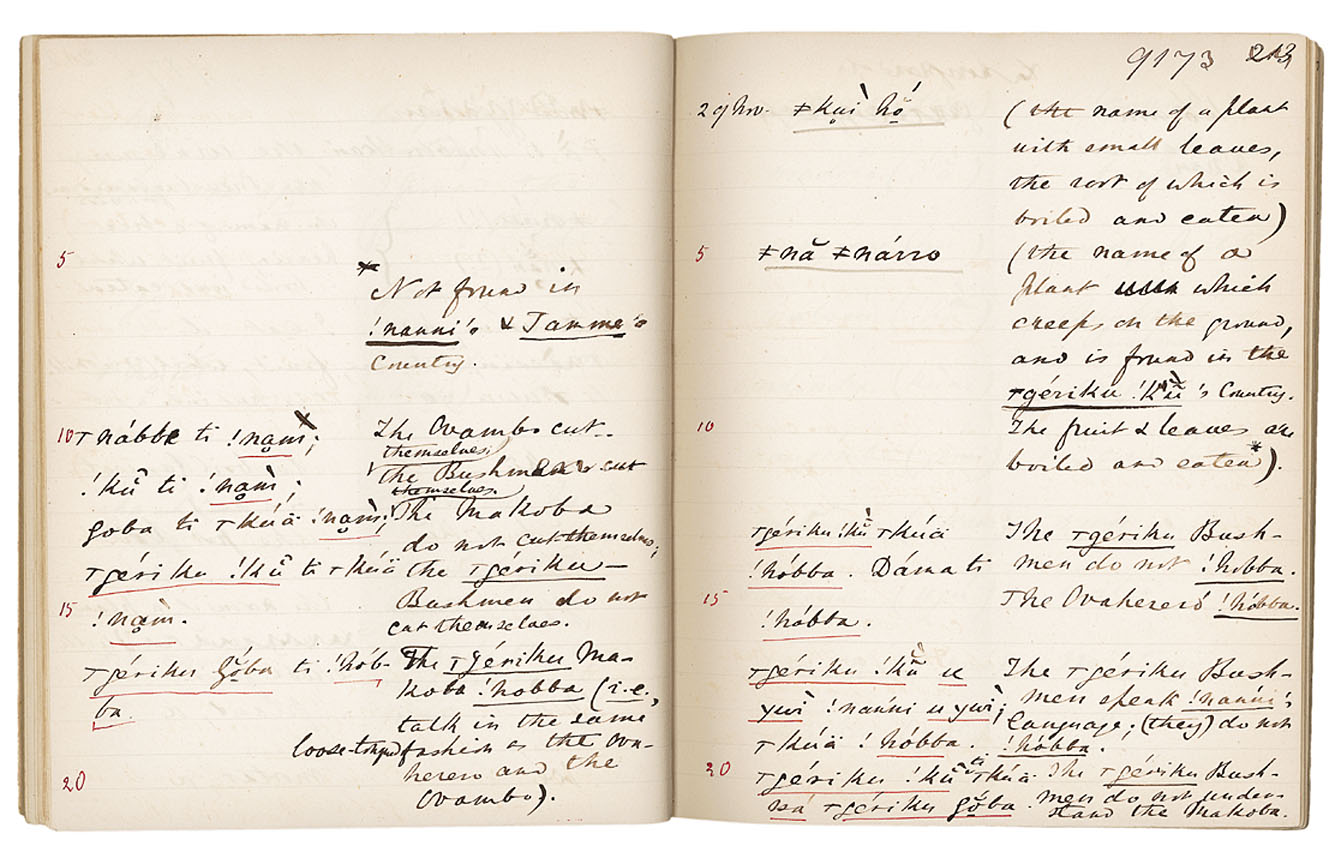 5
* Not found in
!nanni's & Tamme's
Country.
10 ꞇnábbe ti !nạm̀;
The Ovambo cut
themselves;
!kṹ ti !nạm̀;
the Bushmen cut
themselves.
goba ti ꞇkúä !nạm̀;
The Makoba
do not cut themselves;
ꞇgériku !kṹ ti ꞇkúä
the ꞇgériku
15 !nạm.
Bushmen do not
cut themselves.
ꞇgériku gŏ́ba ti !hób-
ba.
The ꞇgériku Ma-
koba !hobba (i.e.,
talk in the same
loose-tongued fashion as the Ova-
herero and the
20
Ovambo).
9173 213
29 Nov. ǂkụì họ̆́
(the name of a plant
with small leaves,
the root of which is
boiled and eaten)
5 ǂnă ǂnárro
(the name of a
plant which
creeps on the ground,
and is found in the
ꞇgériku !kṹ's Country.
10
The fruit & leaves are
boiled and eaten*).
ꞇgériku !kṹ ꞇkúä
!hóbba. Dáma ti
15 !hóbba.
The ꞇgériku Bush-
men do not !hobba.
The Ovahereró !hóbba.
ꞇgériku !kṹ u
ywì !nanni u ywì;
ꞇkúä !hóbba.
The ꞇgériku Bush-
men speak !nanni's
language; (they) do not
!hóbba.
20 ꞇgériku !kṹ ti ꞇkúä
sá ꞇgériku gŏ́ba.
The ꞇgériku Bush-
men do not under-
stand the Makoba.